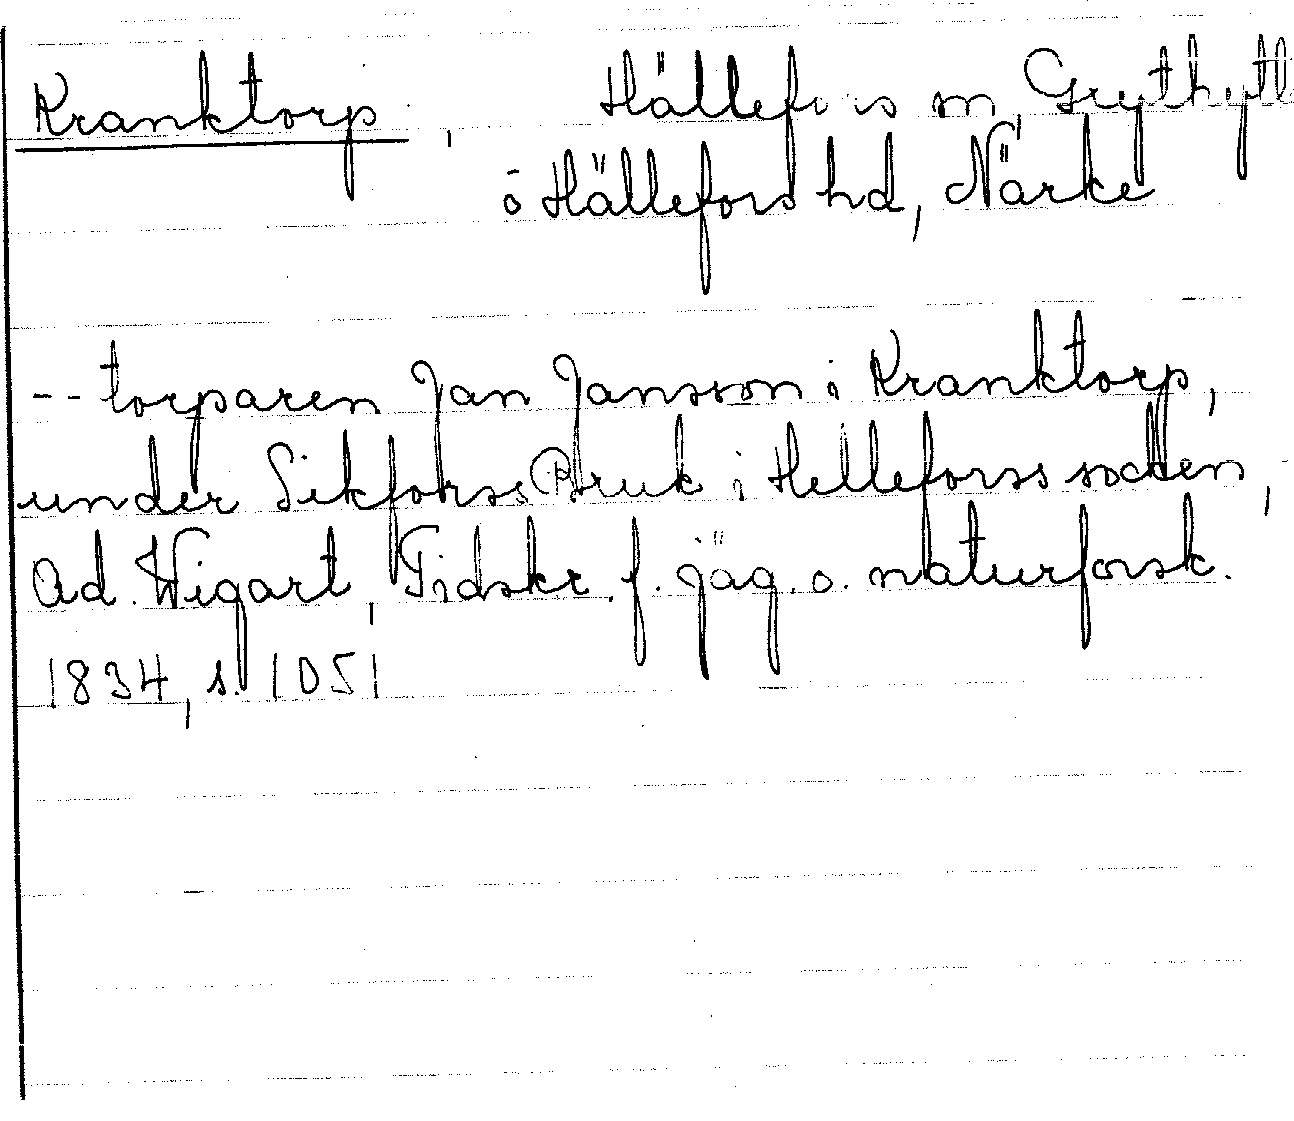 Kranktorp, Hällefors sn, Grythytt
o Hällefors hd, Närke
-- torparen Jan Jansson i Kranktorp,
under Sikforss Bruk i Helleforss socken,
Ad. Wigart, Tidskr. f. jäg. o. naturforsk.
1834, s. 1051